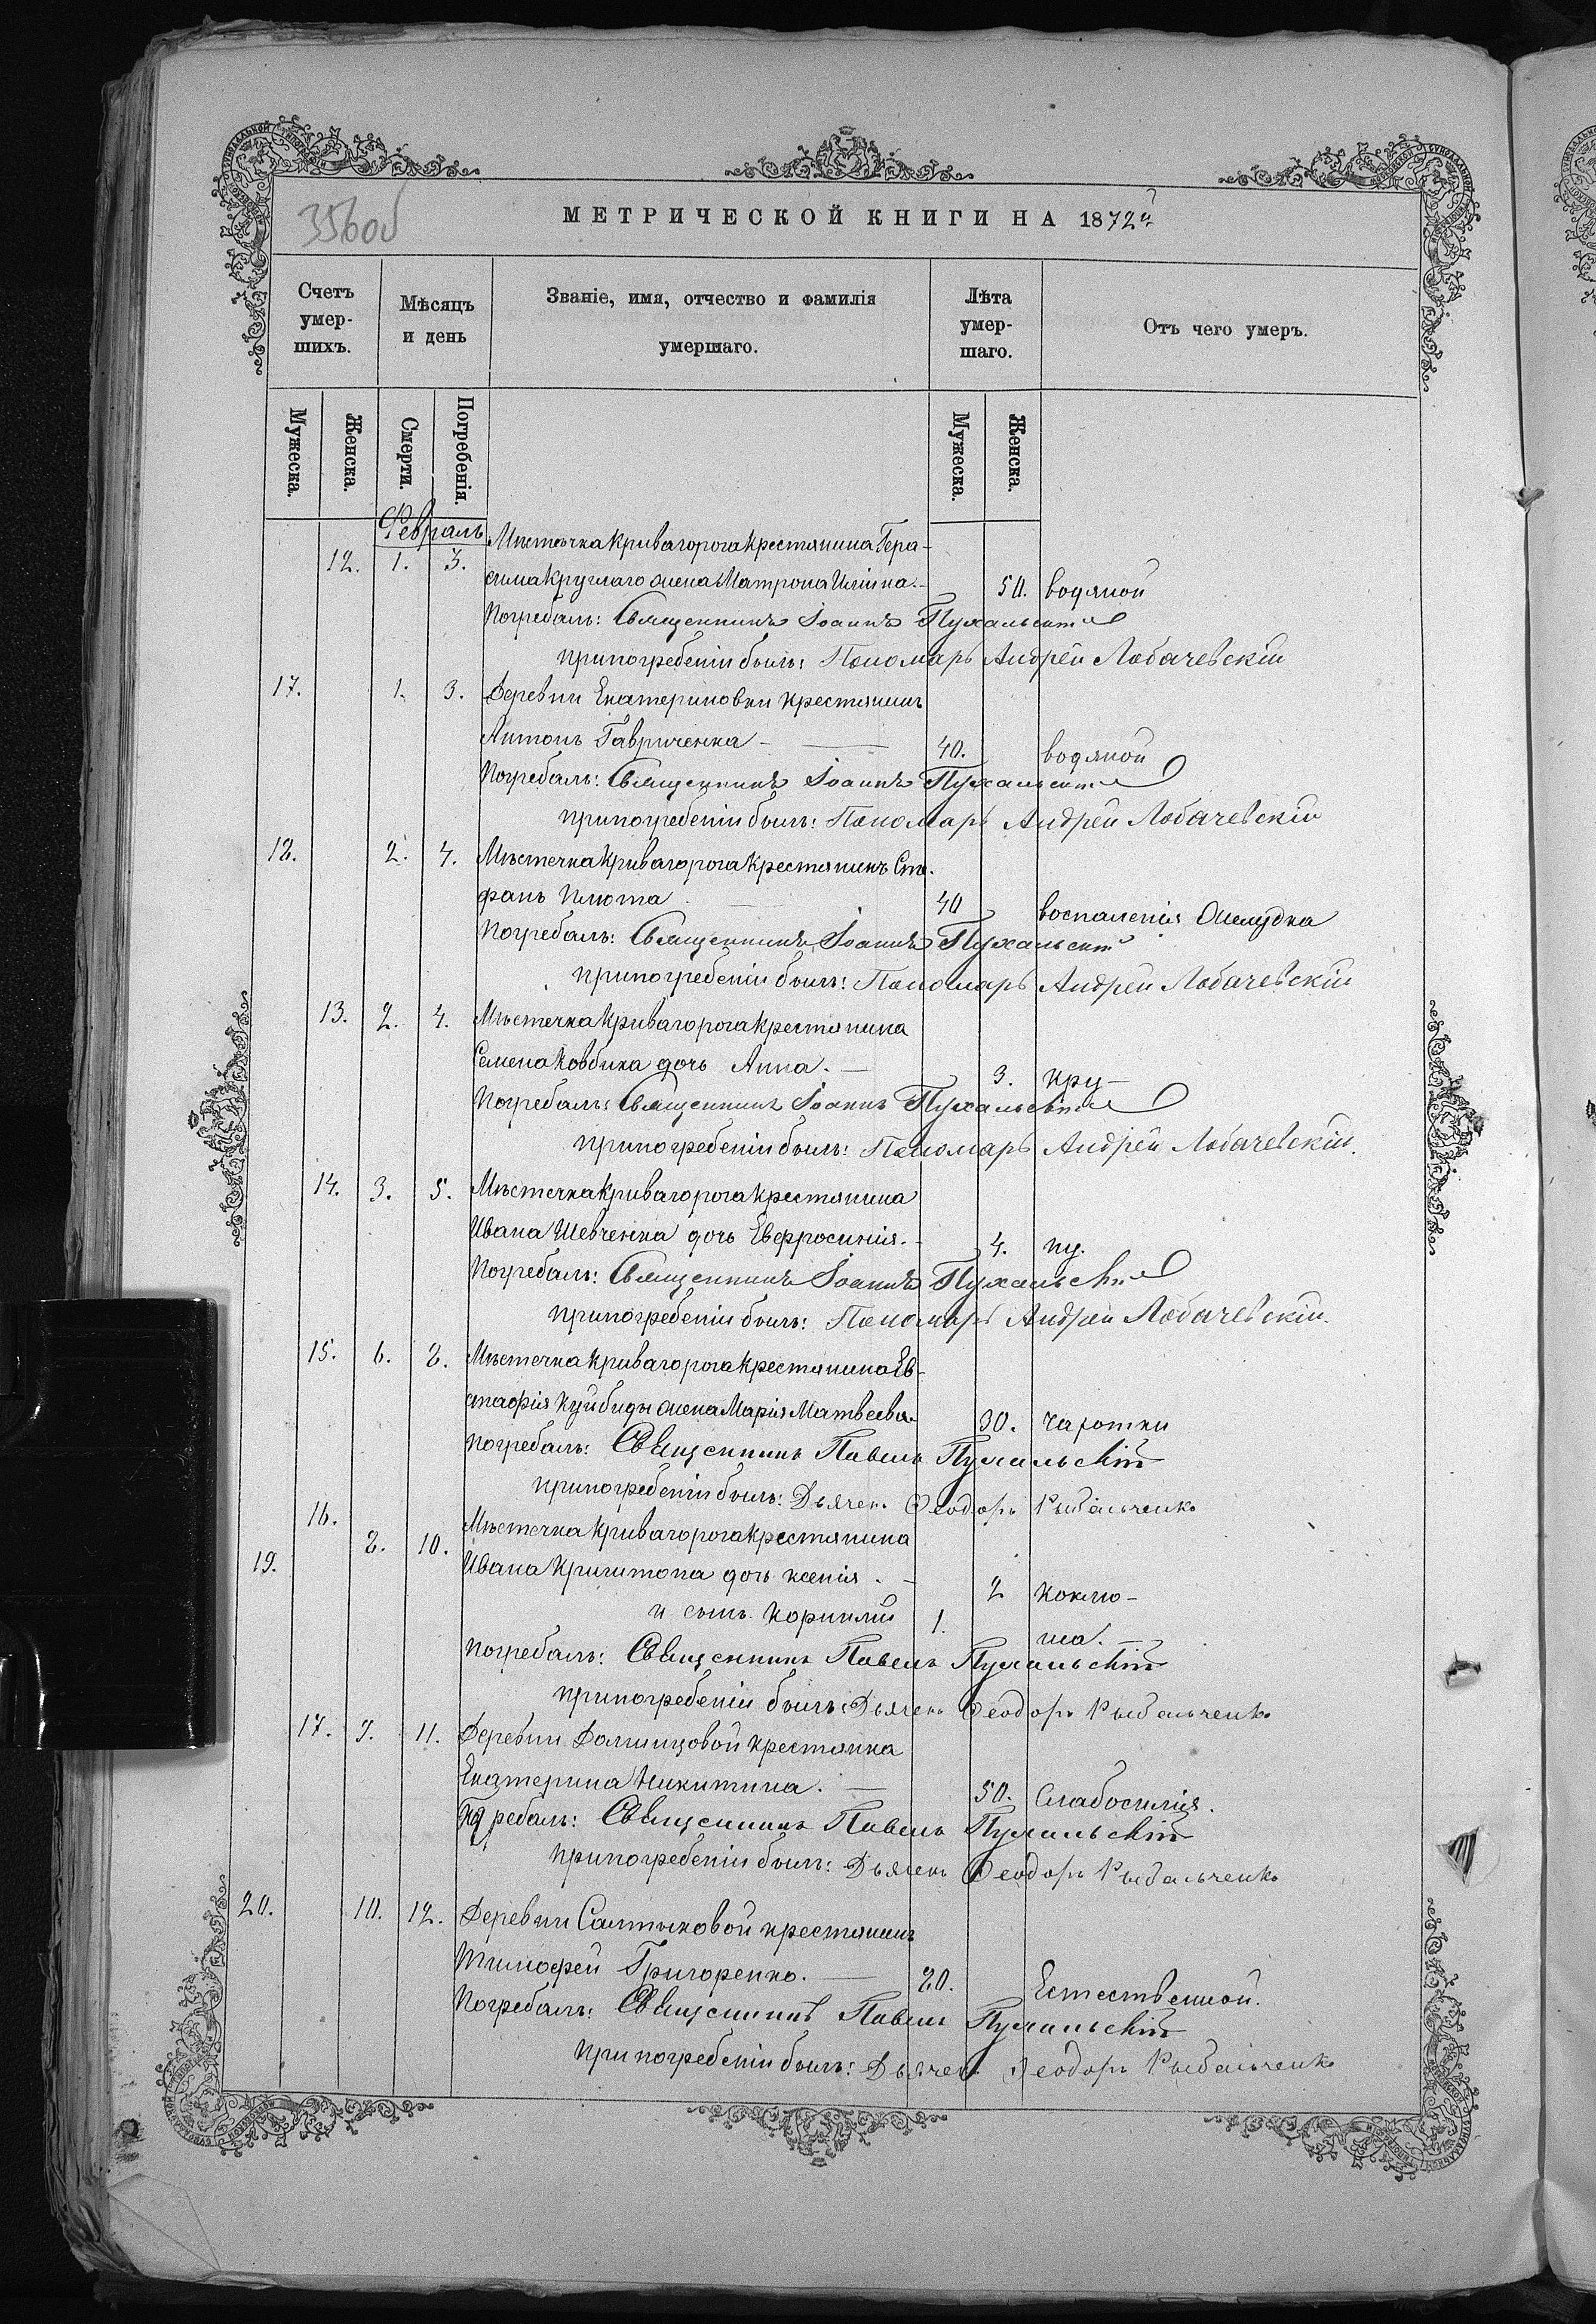 356об
МЕТРИЧЕСКОЙ КНИГИ НА 1872й
Счетъ умер- шихъ.
Мѣсяцъ и день
Званіе, имя, отчество и фамилія умершаго.
Лѣта умер- шаго.
Отъ чего умеръ.
Мужеска. Женска. Смерти. Погребенія. Мужеска. Женска.
Февраль
Мѣстечка Криваго рога крестянина Гера-
12. 1. 3. сима Круглаго жена Матрона Иліина. 50. водяной
Погребалъ: Священникъ Іоаннъ Пухальскій
при погребеніи былъ: Пономарь Андрей Лобачевскій
17. 1. 3. Деревни Екатериновки крестянинъ
Антонъ Гавриченка 40. водяной
Погребалъ: Священникъ Іоаннъ Пухальскій
при погребеніи былъ: Пономарь Андрей Лобачевскій
18. 2. 4. Мѣстечка Криваго рога крестянинъ Сте-
фанъ Плюта 40 воспаленія желудка
Погребалъ: Священникъ Іоаннъ Пухальскій
при погребеніи былъ: Пономарь Андрей Лобачевскій
13. 2. 4. Мѣстечка Криваго рога крестянина
Семена Ковбика дочь Анна. 3. кру-
Погребалъ: Священникъ Іоаннъ Пухальскій
при погребеніи былъ: Пономарь Андрей Лобачевскій.
14. 3. 5. Мѣстечка Криваго рога крестянина
Ивана Шевченка дочь Евфросинія. 4. пу.
Погребалъ: Священникъ Іоаннъ Пухальскій
при погребеніи былъ: Пономарь Андрей Лобачевскій.
15. 6. 8. Мѣстечка Криваго рога крестянина Ев-
стафія Куйбиды жена Марія Матвеева 30. чахотки
погребалъ: Священникъ Павелъ Пухальскій
при погребеніи былъ: Дьячекъ Феодоръ Рыбальченко
16. Мѣстечка Криваго рога крестянина
19. 8. 10. Ивана Криштопа дочь Ксенія. 2 коклю-
и сынъ Корнилій 1. ша.
погребалъ: Священникъ Павелъ Пухальскій
при погребеніи былъ: Дьячекъ Феодоръ Рыбальченко
17. 9. 11. Деревни Долгинцовой крестянка
Екатерина Никитина. 50. Слабосилія.
Погребалъ: Священникъ Павелъ Пухальскій
при погребеніи былъ: Дьячекъ Феодоръ Рыбальченко
20. 10. 12. Деревни Салтыковой крестянинъ
Тимофей Григоренко. 80. Естественной.
Погребалъ: Священникъ Павелъ Пухальскій
при погребеніи былъ: Дьячекъ Феодоръ Рыбальченко